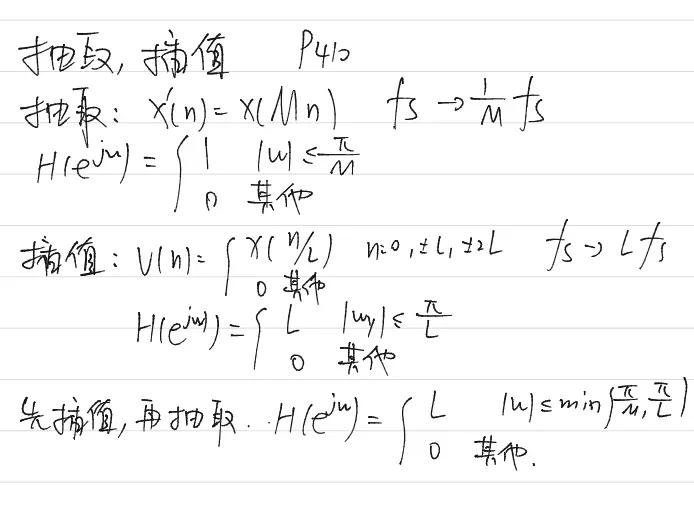 抽取, 插值 P410
抽取: x'(n) = x(Mn) fs → 1/M fs
H(e^jw) = { 1 |w| ≤ π/M
0 其他
插值: V(n) = { x(n/L) n=0, ±L, ±2L fs → L fs
0 其他
H(e^jw) = { L |wy| ≤ π/L
0 其他
先插值, 再抽取. H(e^jw) = { L |w| ≤ min(π/M, π/L)
0 其他.